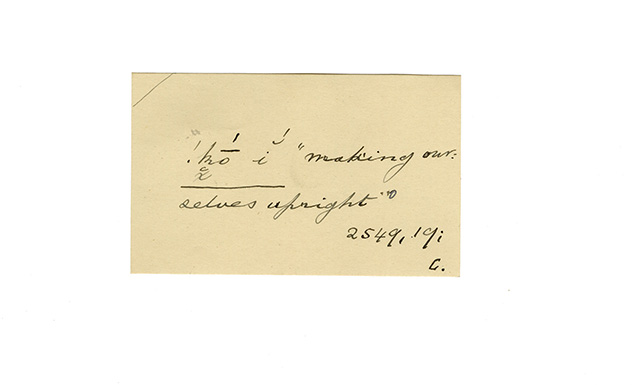 !kṓ ĭ́ "making our:
selves upright"
2549, 19;
L.